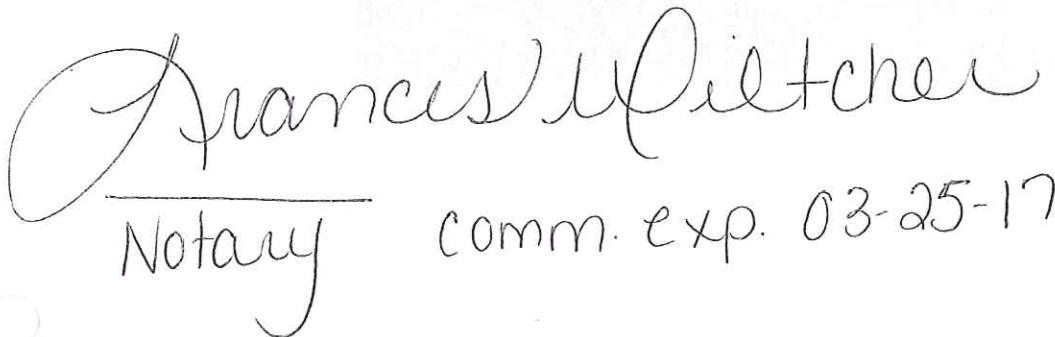 Frances Wiltcher
Notary comm. exp. 03-25-17